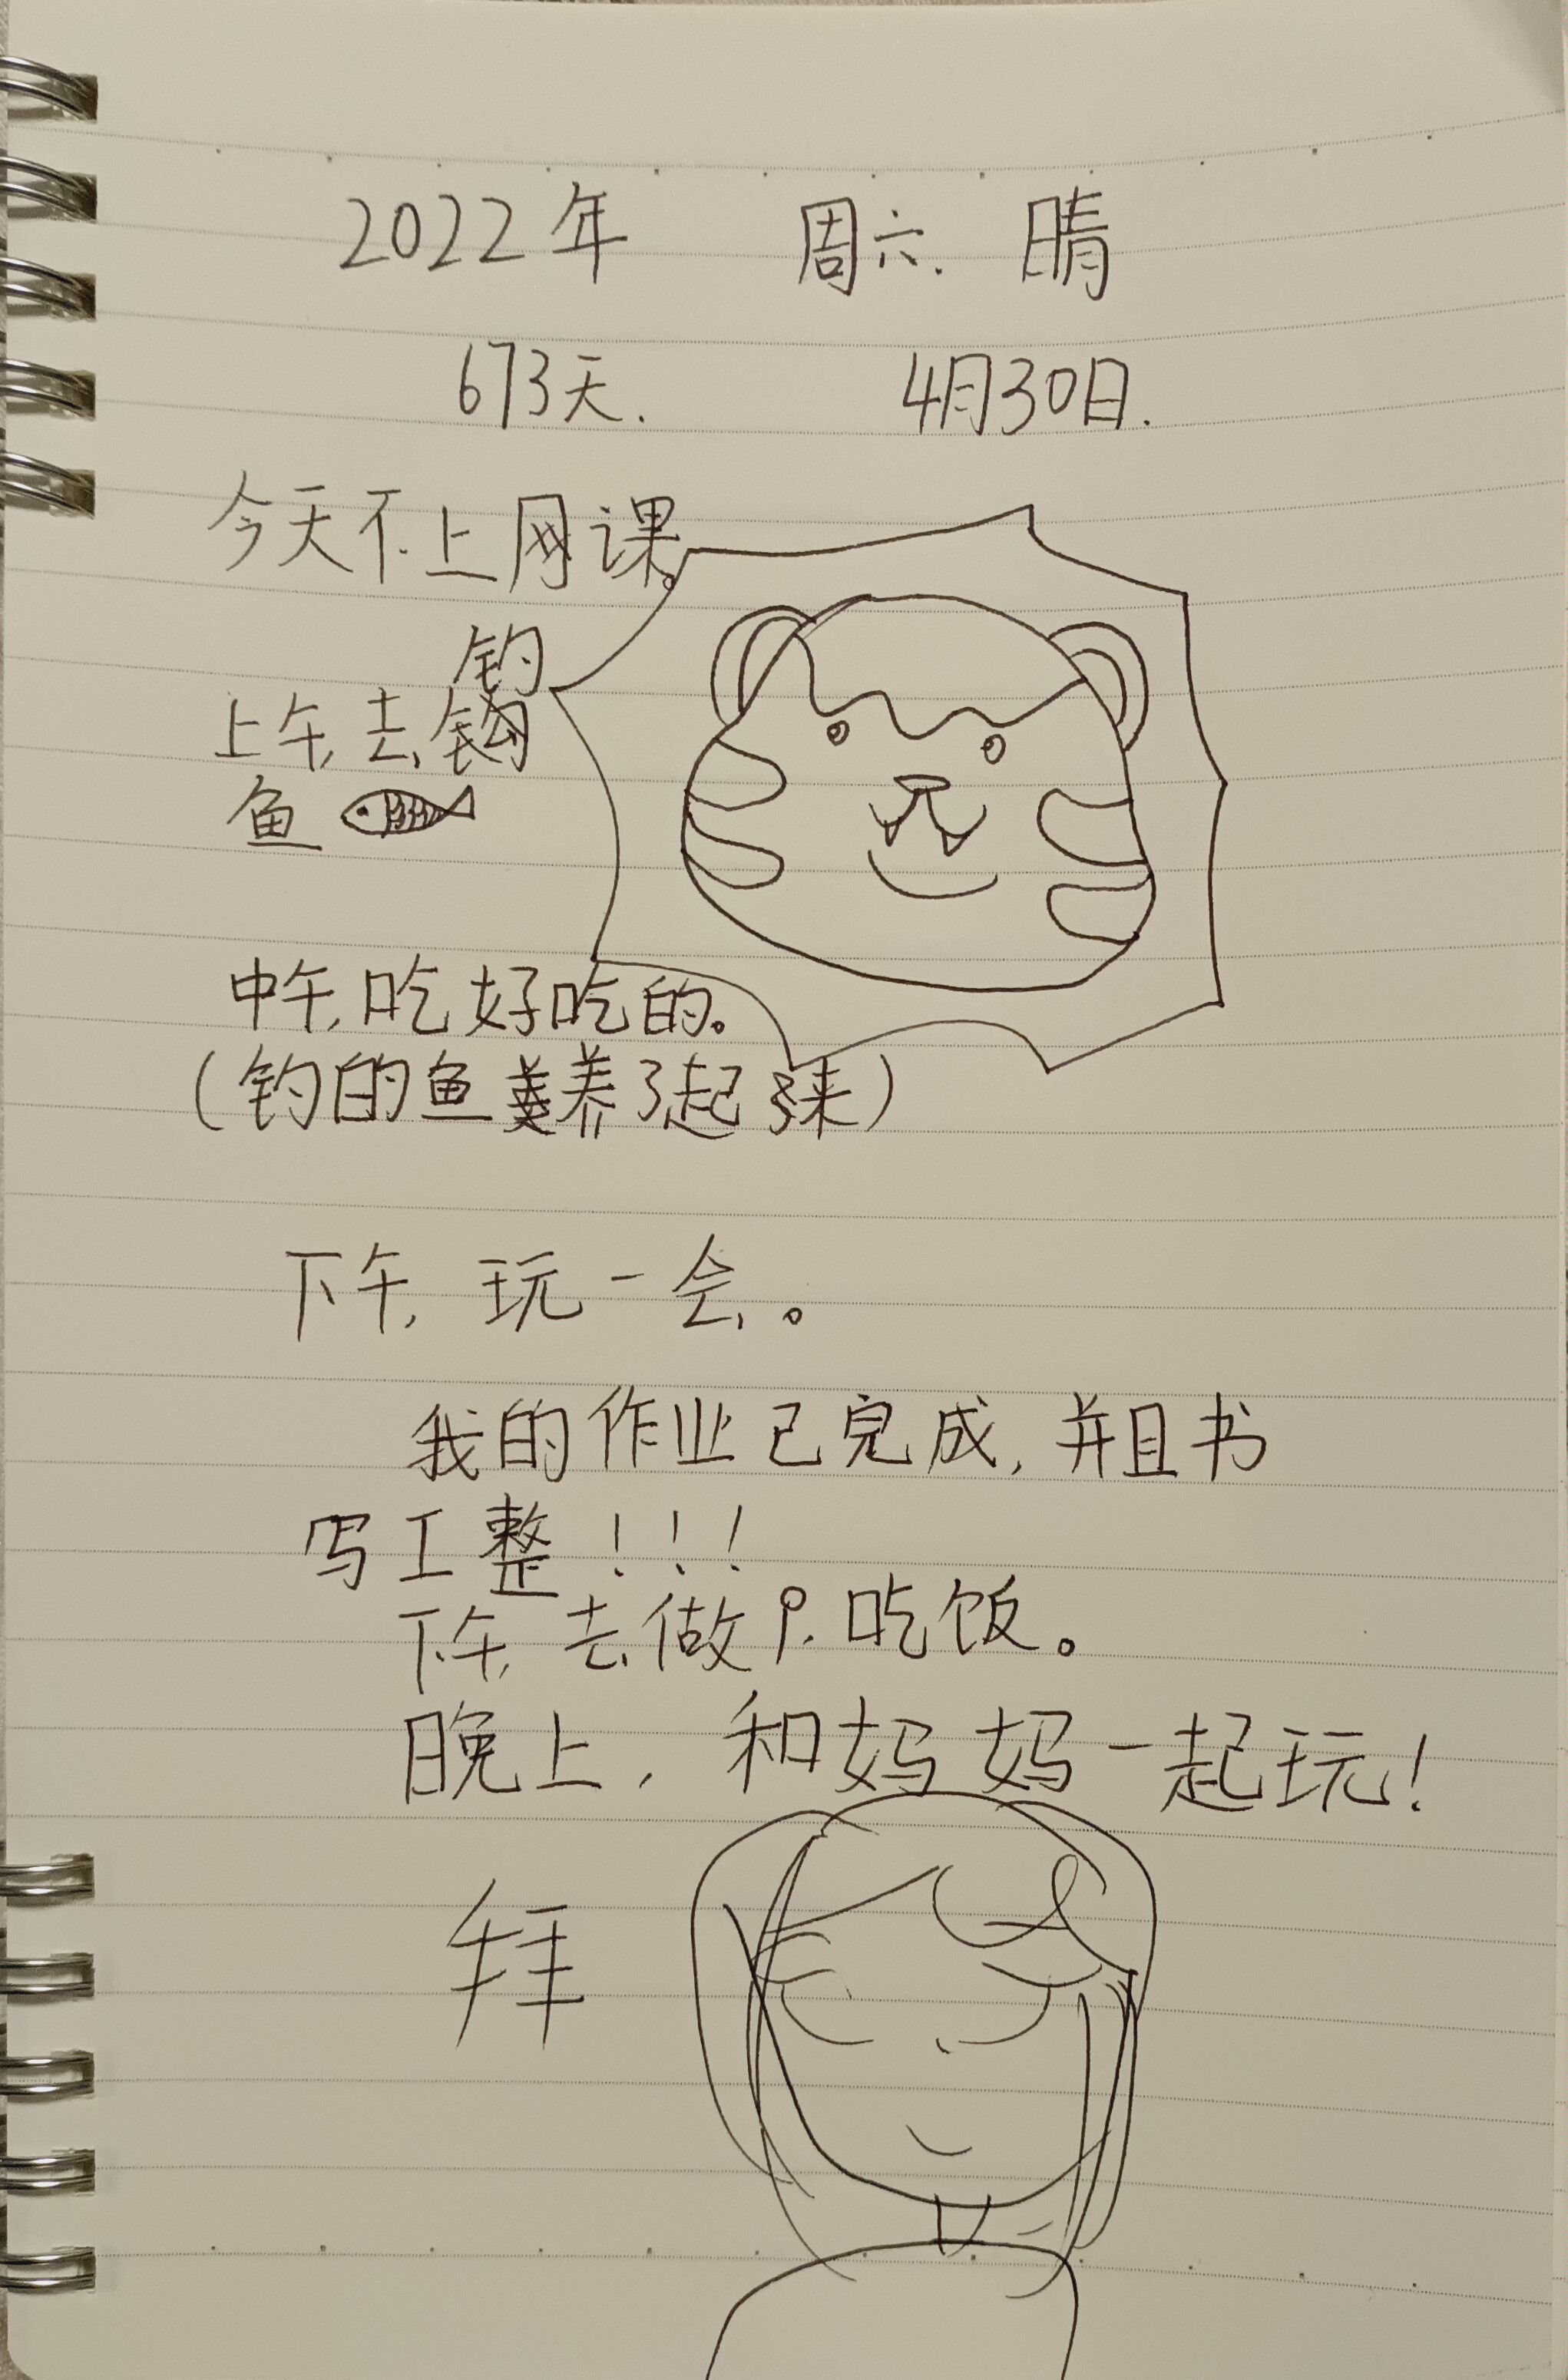 2022年 周六. 晴
673天. 4月30日.
今天不上网课。
钓
上午,去钩
鱼
中午,吃好吃的。
(钓的鱼养了起来)
下午,玩一会。
我的作业已完成,并且书
写工整!!!
下午,去做P.吃饭。
晚上,和妈妈一起玩!
拜